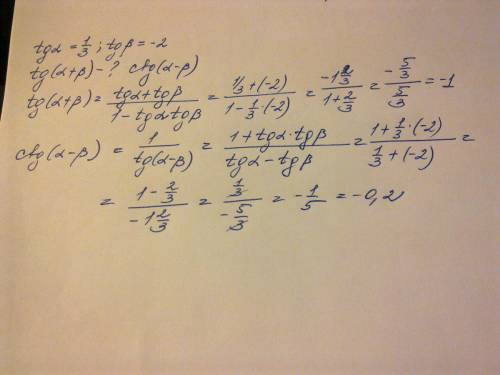 tgα = 1/3 ; tgβ = -2
tg(α+β) - ? ctg(α-β)
tg(α+β) = (tgα + tgβ)/(1 - tgα tgβ) = (1/3 + (-2))/(1 - 1/3 · (-2)) = (-1 2/3)/(1 + 2/3) = (-5/3)/(5/3) = -1
ctg(α-β) = 1/(tg(α-β)) = (1 + tgα · tgβ)/(tgα - tgβ) = (1 + 1/3 · (-2))/(1/3 + (-2)) =
= (1 - 2/3)/(-1 2/3) = (1/3)/(-5/3) = -1/5 = -0,2